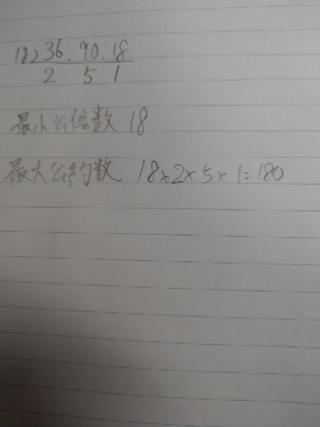 18⟌36.90.18
2 5 1
最小公倍数 18
最大公约数 18×2×5×1=180